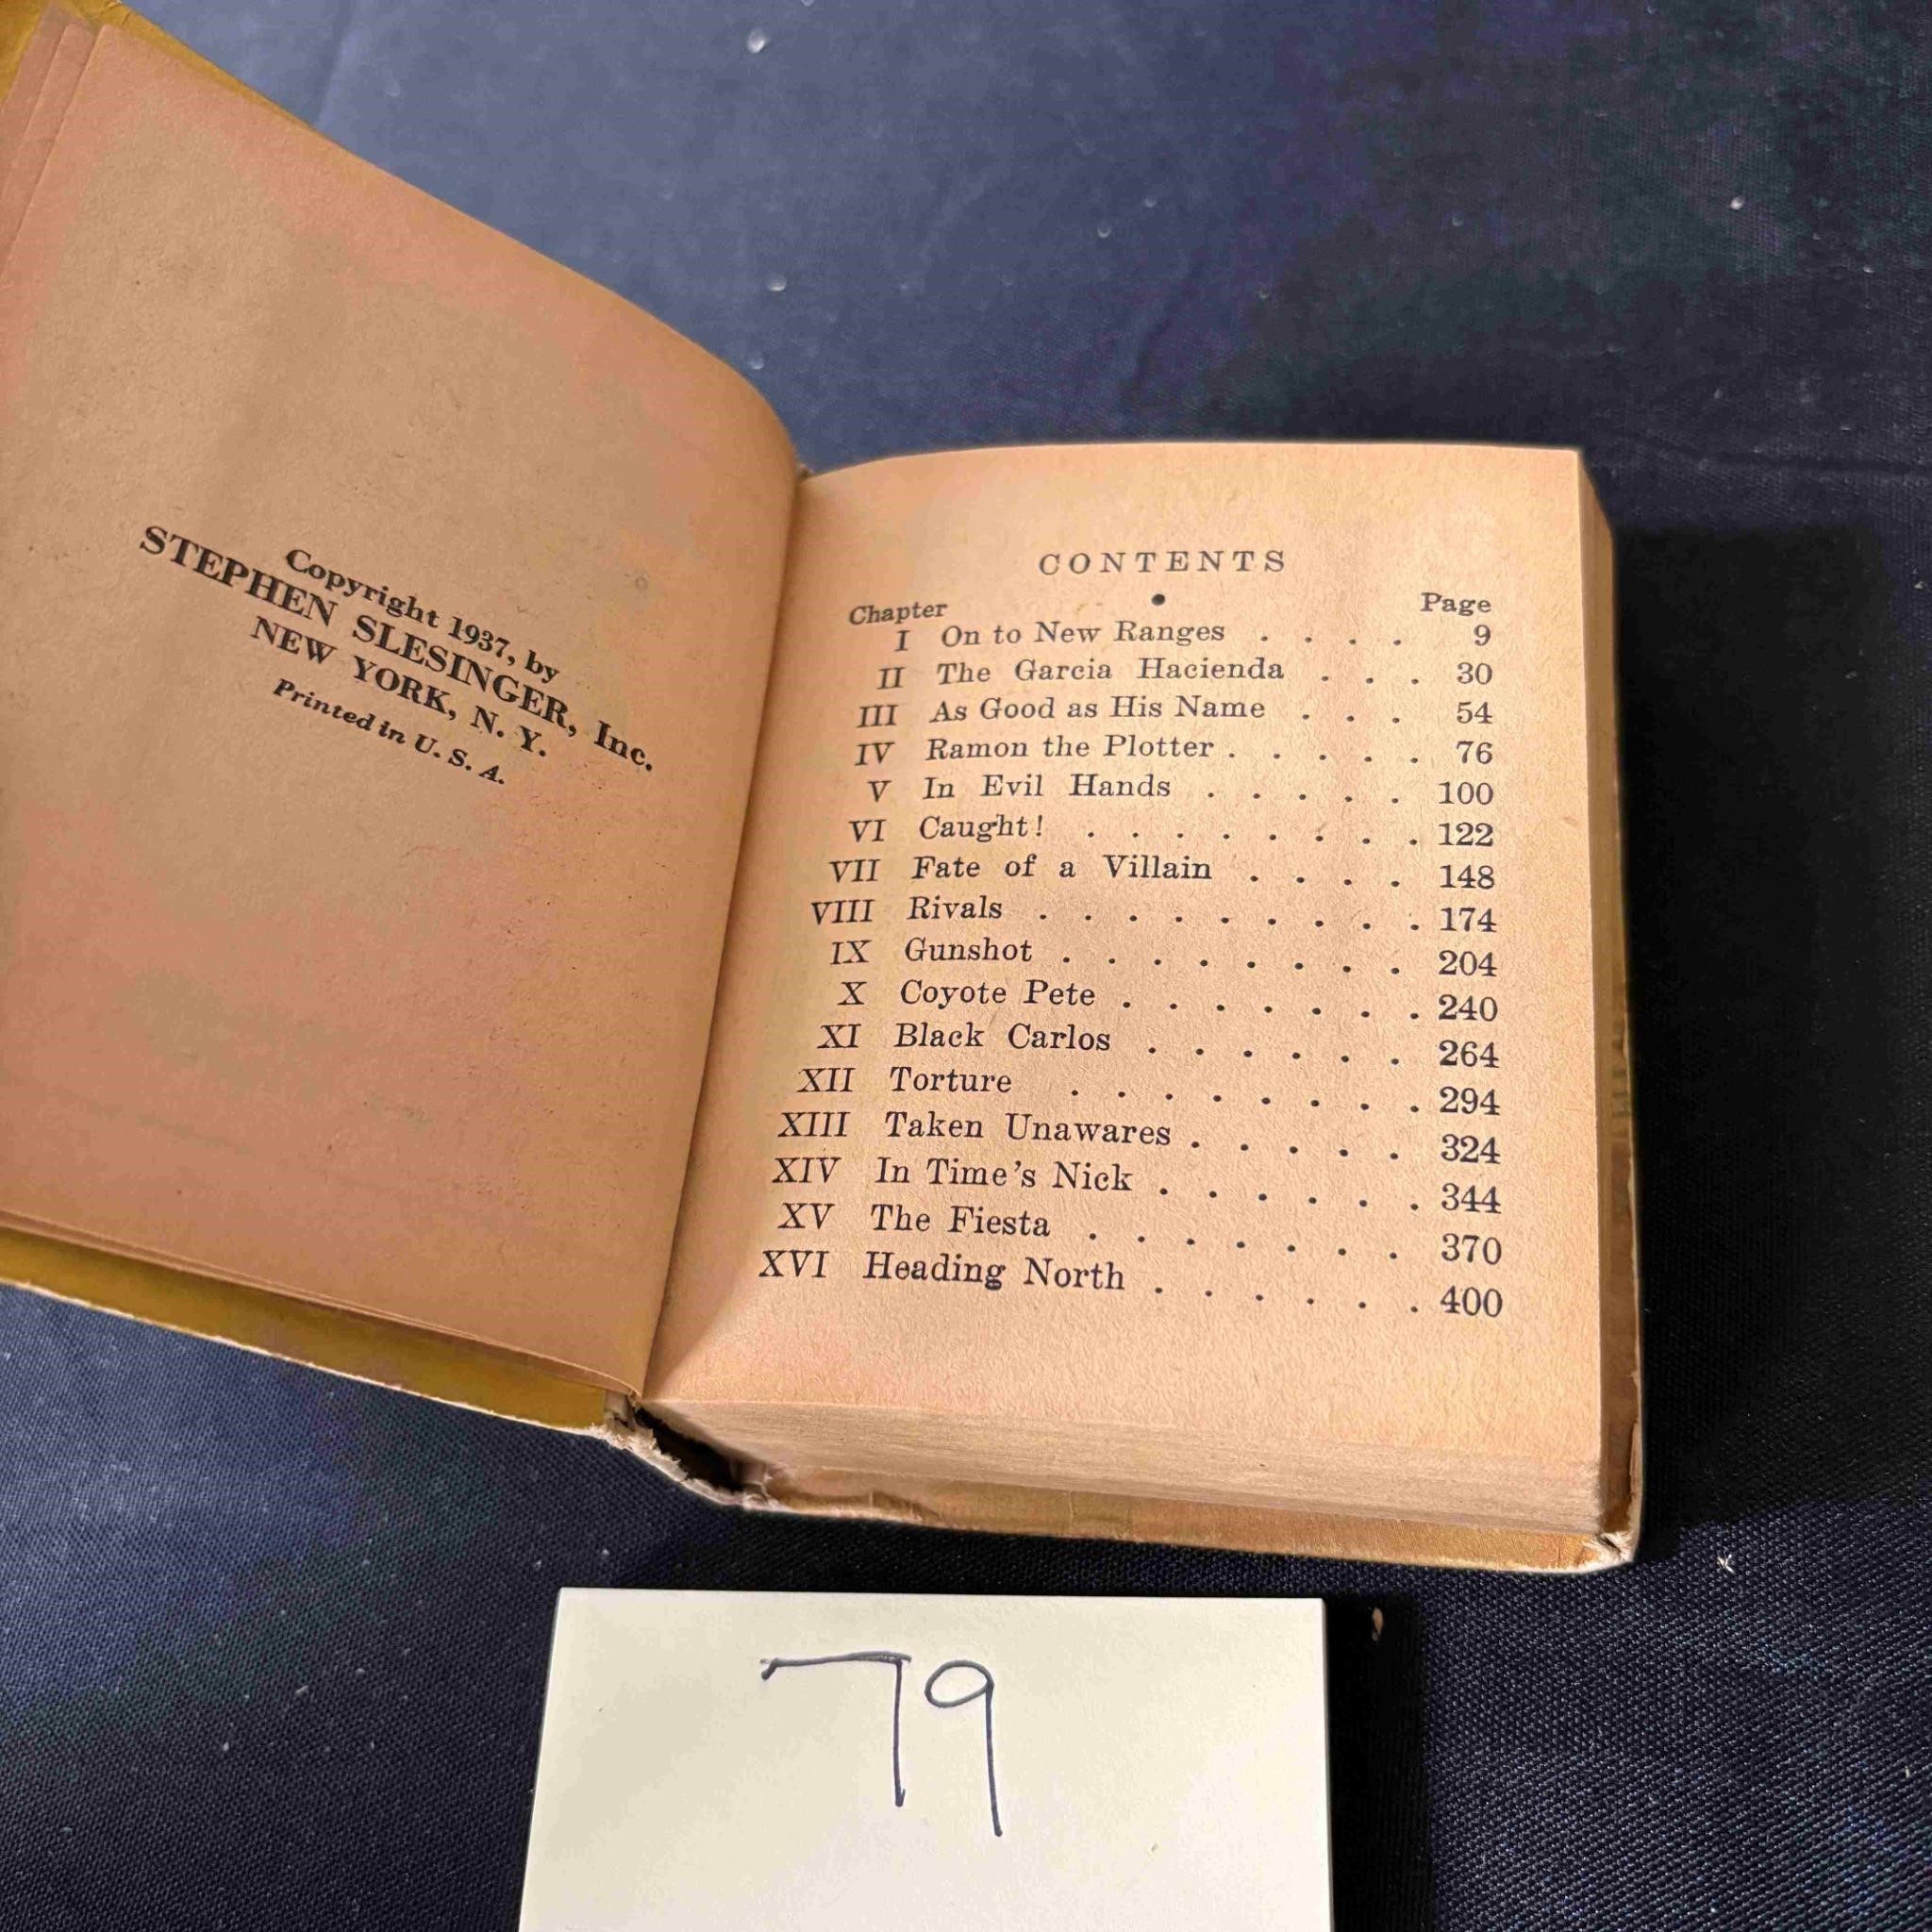 Copyright 1937, by
STEPHEN SLESINGER, Inc.
NEW YORK, N. Y.
Printed in U. S. A.
CONTENTS
•
Chapter Page
I On to New Ranges . . . . 9
II The Garcia Hacienda . . . 30
III As Good as His Name . . . 54
IV Ramon the Plotter . . . . . 76
V In Evil Hands . . . . . 100
VI Caught! . . . . . . . . 122
VII Fate of a Villain . . . . 148
VIII Rivals . . . . . . . . . 174
IX Gunshot . . . . . . . . 204
X Coyote Pete . . . . . . . 240
XI Black Carlos . . . . . . 264
XII Torture . . . . . . . . 294
XIII Taken Unawares . . . . . 324
XIV In Time's Nick . . . . . . 344
XV The Fiesta . . . . . . . 370
XVI Heading North . . . . . . 400
79